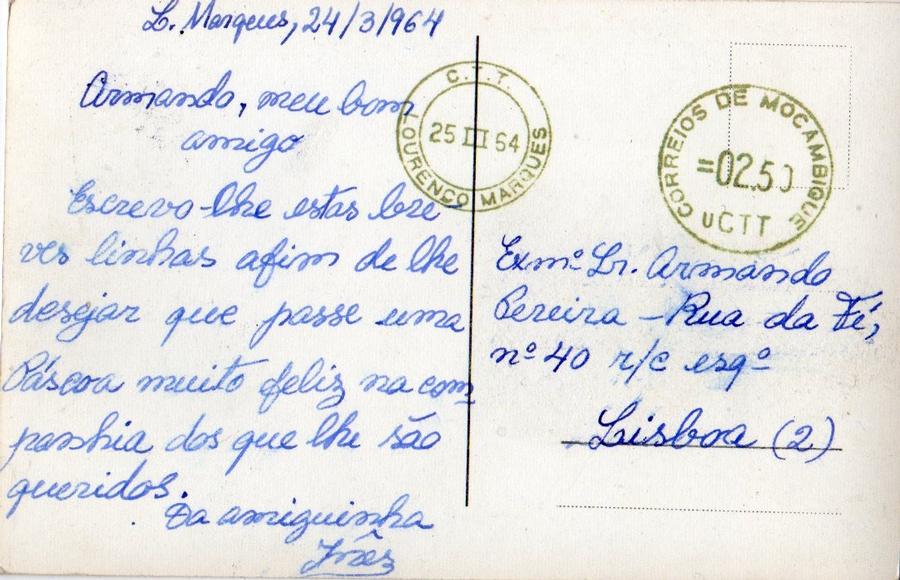 L. Marques, 24/3/1964
Armando, meu bom
amigo
Escrevo-lhe estas bre
ves linhas afim de lhe
desejar que passe uma
Páscoa muito feliz na com
panhia dos que lhe são
queridos.
Da amiguinha
Inês
C.T.T.
25 III 64
LOURENÇO MARQUES
CORREIOS DE MOÇAMBIQUE
=02.50
CTT
Exmº Sr. Armando
Pereira - Rua da Fé,
nº 40 r/c esqº
Lisboa (2)